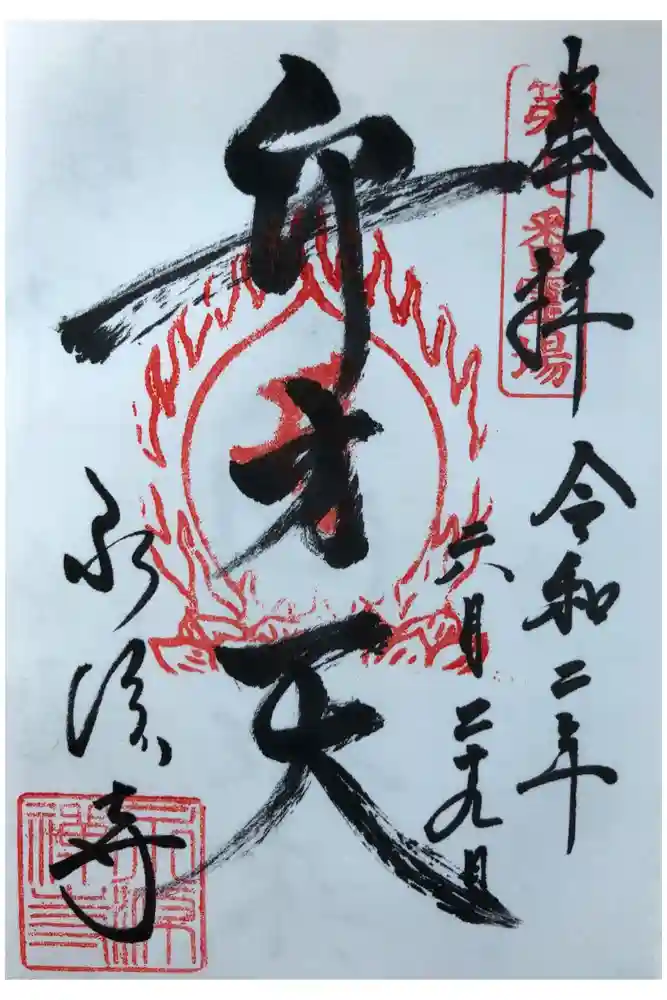 奉拝
第七番霊場
令和二年
六月二十九日
弁才天
永源寺